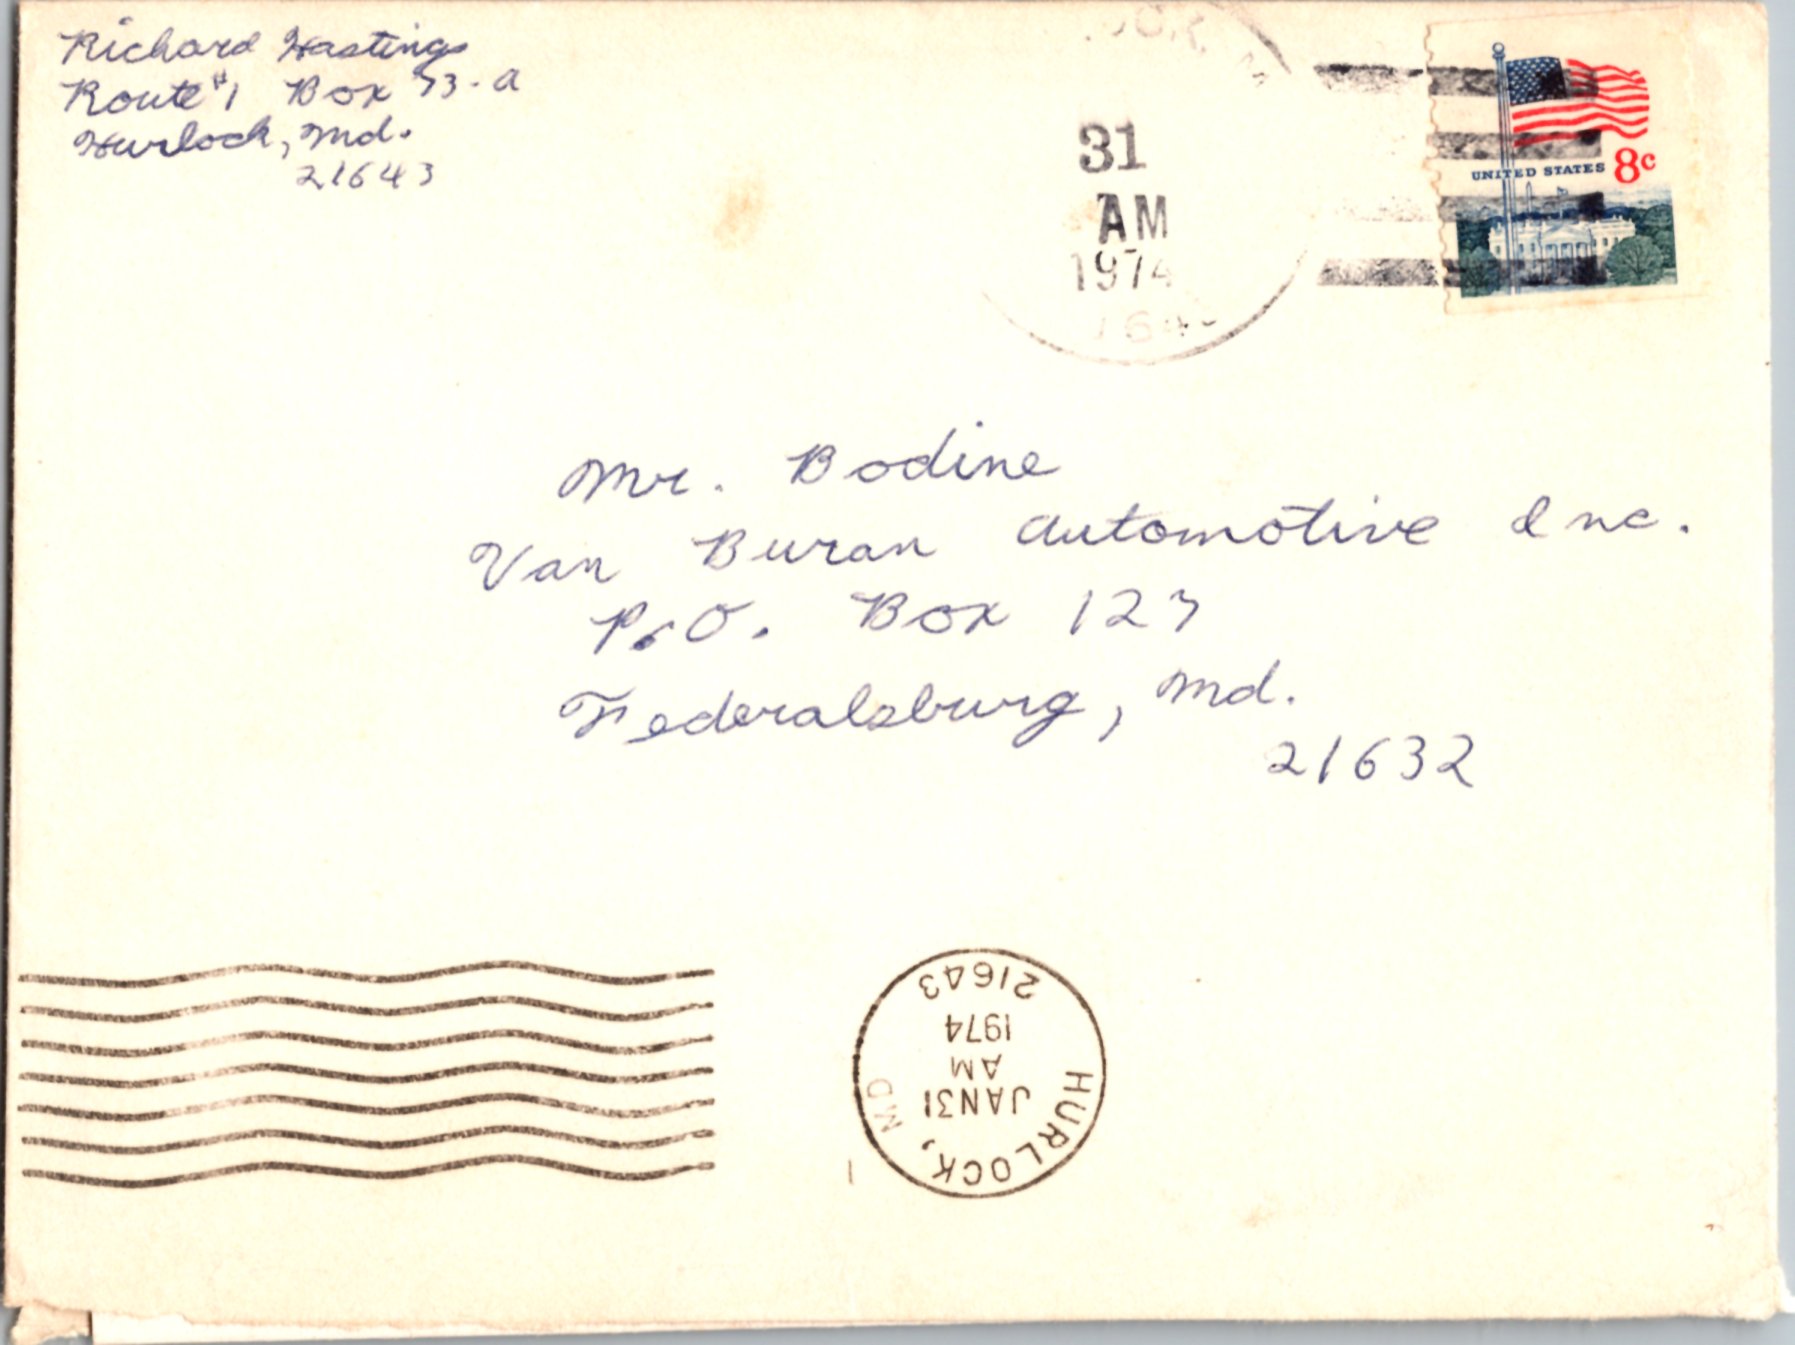 Richard Hastings
Route #1 Box 73-a
Hurlock, Md.
21643
31
AM
1974
UNITED STATES 8c
Mr. Bodine
Van Buran Automotive Inc.
P.O. Box 127
Federalsburg, Md.
21632
HURLOCK, MD
JAN 31
AM
1974
21643